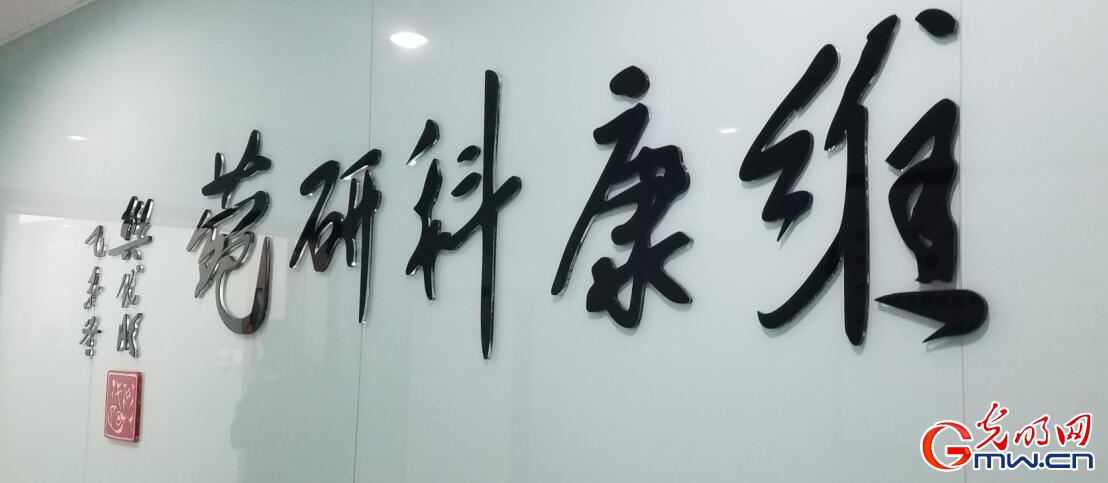 维康科研苑
樊代明
光明网
Gmw.cn